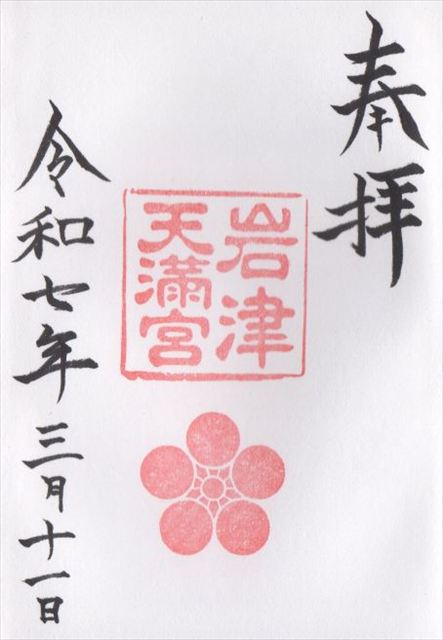 奉拝
岩津
天満宮
令和七年三月十一日